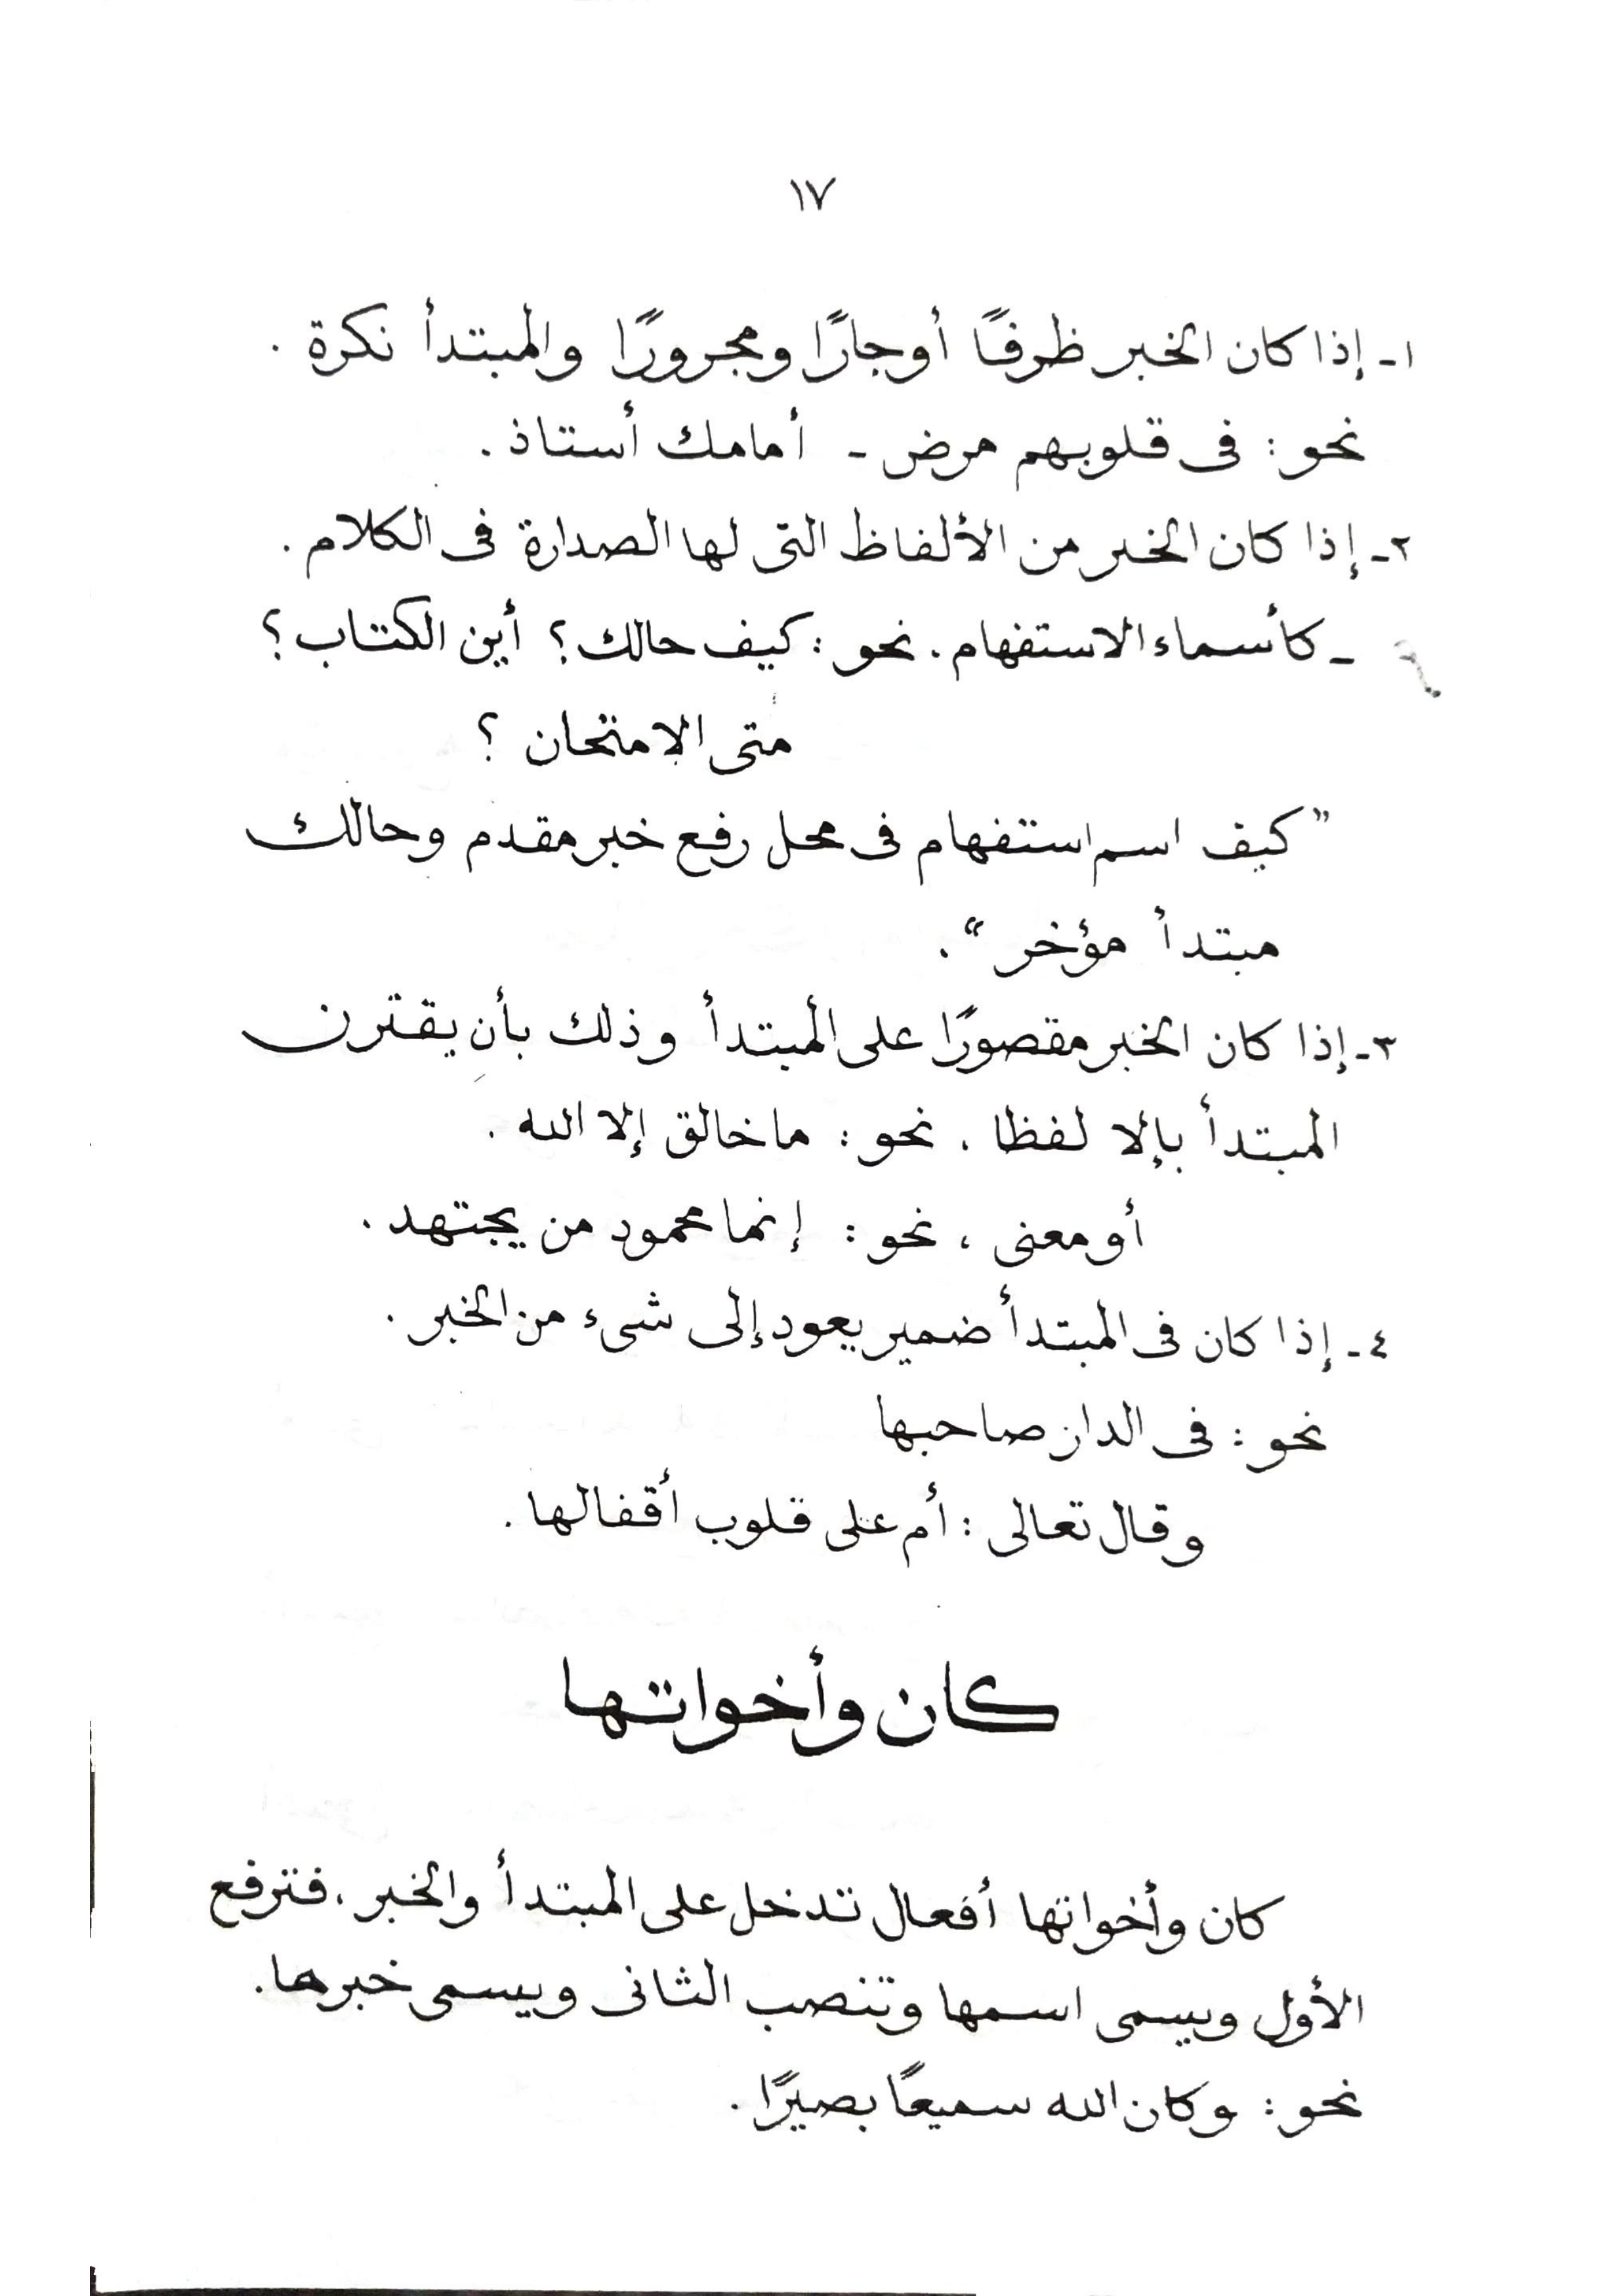 ١٧
١- إذا كان الخبر ظرفًا أو جارًا ومجرورًا والمبتدأ نكرة .
نحو : فى قلوبهم مرض - أمامك أستاذ .
٢- إذا كان الخبر من الألفاظ التى لها الصدارة فى الكلام .
- كأسماء الاستفهام . نحو : كيف حالك ؟ أين الكتاب ؟
متى الامتحان ؟
" كيف اسم استفهام فى محل رفع خبر مقدم وحالك
مبتدأ مؤخر " .
٣- إذا كان الخبر مقصورًا على المبتدأ وذلك بأن يقترن
المبتدأ بإلا لفظا ، نحو : ما خالق إلا الله .
أو معنى ، نحو : إنما محمود من يجتهد .
٤- إذا كان فى المبتدأ ضمير يعود إلى شىء من الخبر .
نحو : فى الدار صاحبها
وقال تعالى : أم على قلوب أقفالها .
كان وأخواتها
كان وأخواتها أفعال تدخل على المبتدأ والخبر ، فترفع
الأول ويسمى اسمها وتنصب الثانى ويسمى خبرها .
نحو : وكان الله سميعًا بصيرًا .